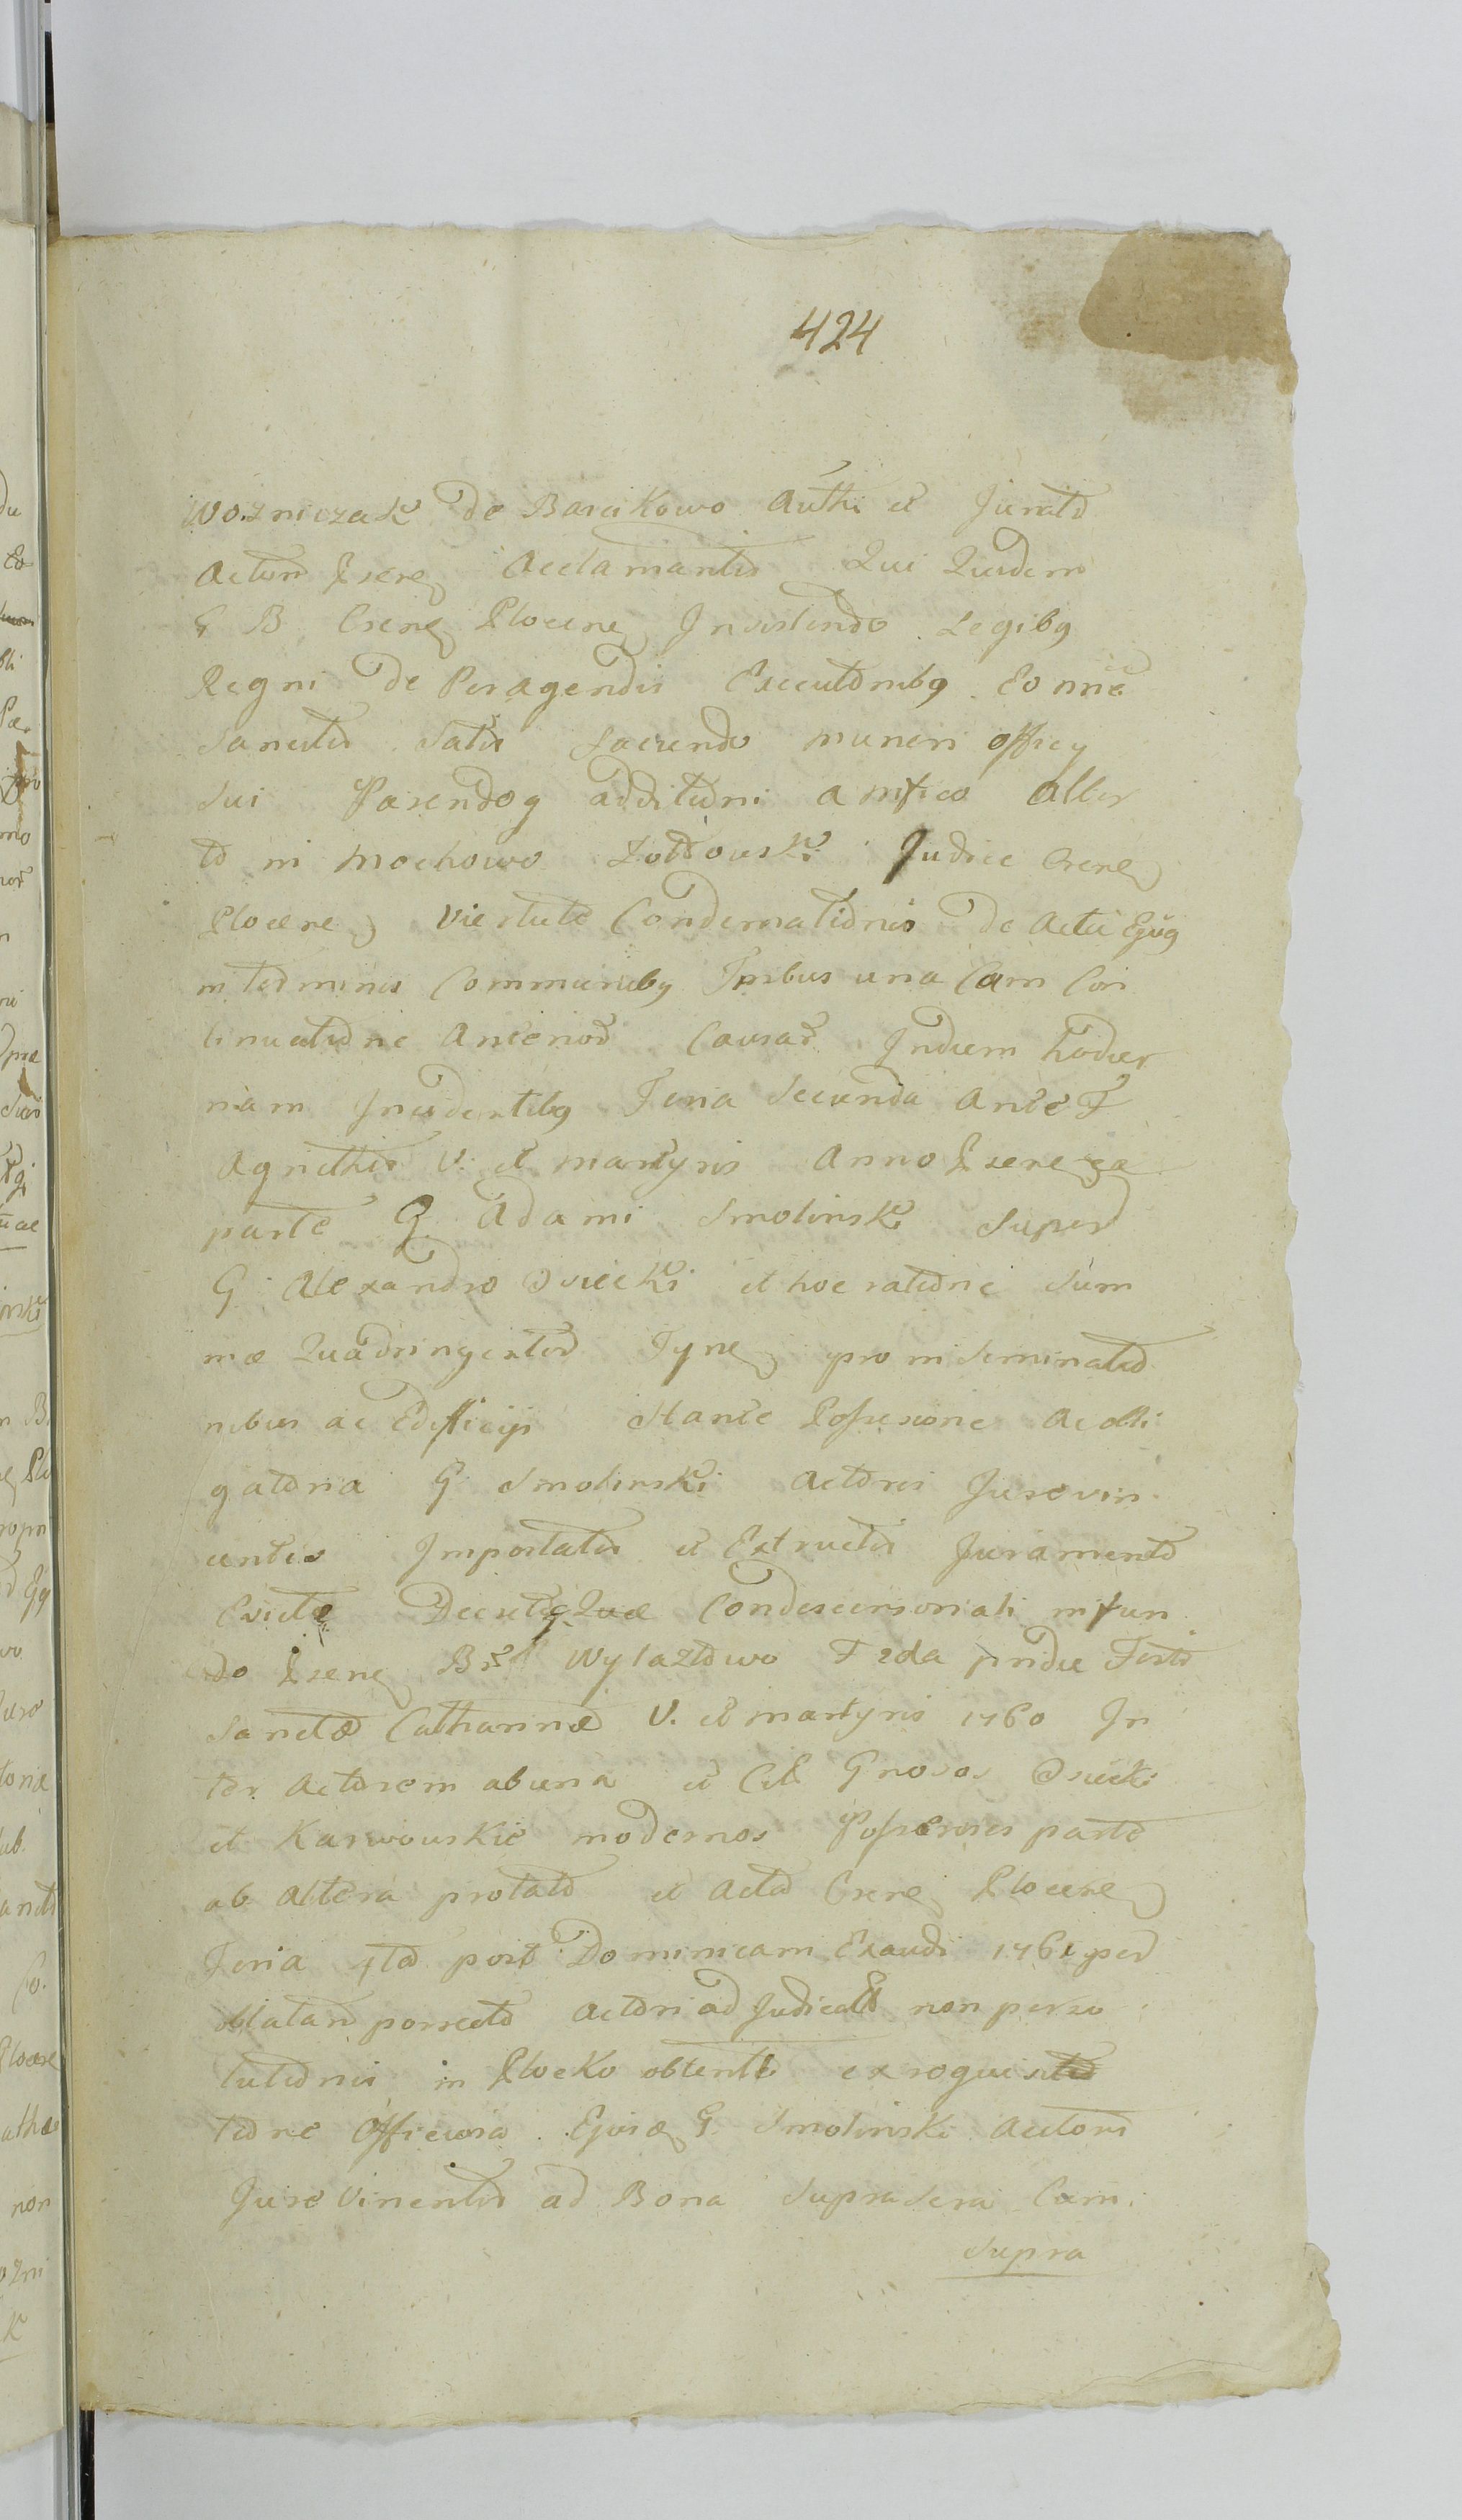 424
Wozniczak de Barcikowo Authi et Jurato
Actum Acclamantis Qui Quidem
G B Csrens Plocens Insistendo Legibq
Regni de Peragendis Executombq Eo nne
Sancitis Satis faciendo muneri officy
Sui Parendoq additum a mfico Alber
to in Mochowo Zoltowski Judice Csrens
Plocens Virtute Condemnationis De Actu Ejusq
in terminis Communibq Tribus una Cum Con
tinuatione Anterior Causar Indiem hodier
nam Incidentibq Feria Secunda Ante F
Agnethis V. et martyris Anno
parte G. Adami Smolinski Super
G Alexandro Osiecki et hoc ratione Sum
mæ Quadringentor Tyne pro inseminatio
nibus ac Edificijs Stante Possesione ac obli
gatoria G Smolinski Actoris Jurevin
centis Importatis et Extructis Juramento
Evictæ Condescensionali infun
do Wylazlowo Feria pridie Festi
Sanctæ Catharinæ V. et martyris 1760 In
ter Actorem ab una et Gnosos Osiecki
et Karwowskie modernos Possesores parte
ab Altera prolato et Acta Csrens Plocens
Feria 4ta post Dominicam Exaudi 1761 per
oblatam porrecto Actori adjudicat non perso
lutionis in Plocko obtento ex
tione Officiosa Ejusd G Smolinski Actoris
Jure Vincentis ad Bona Suprasera Cum
Supra